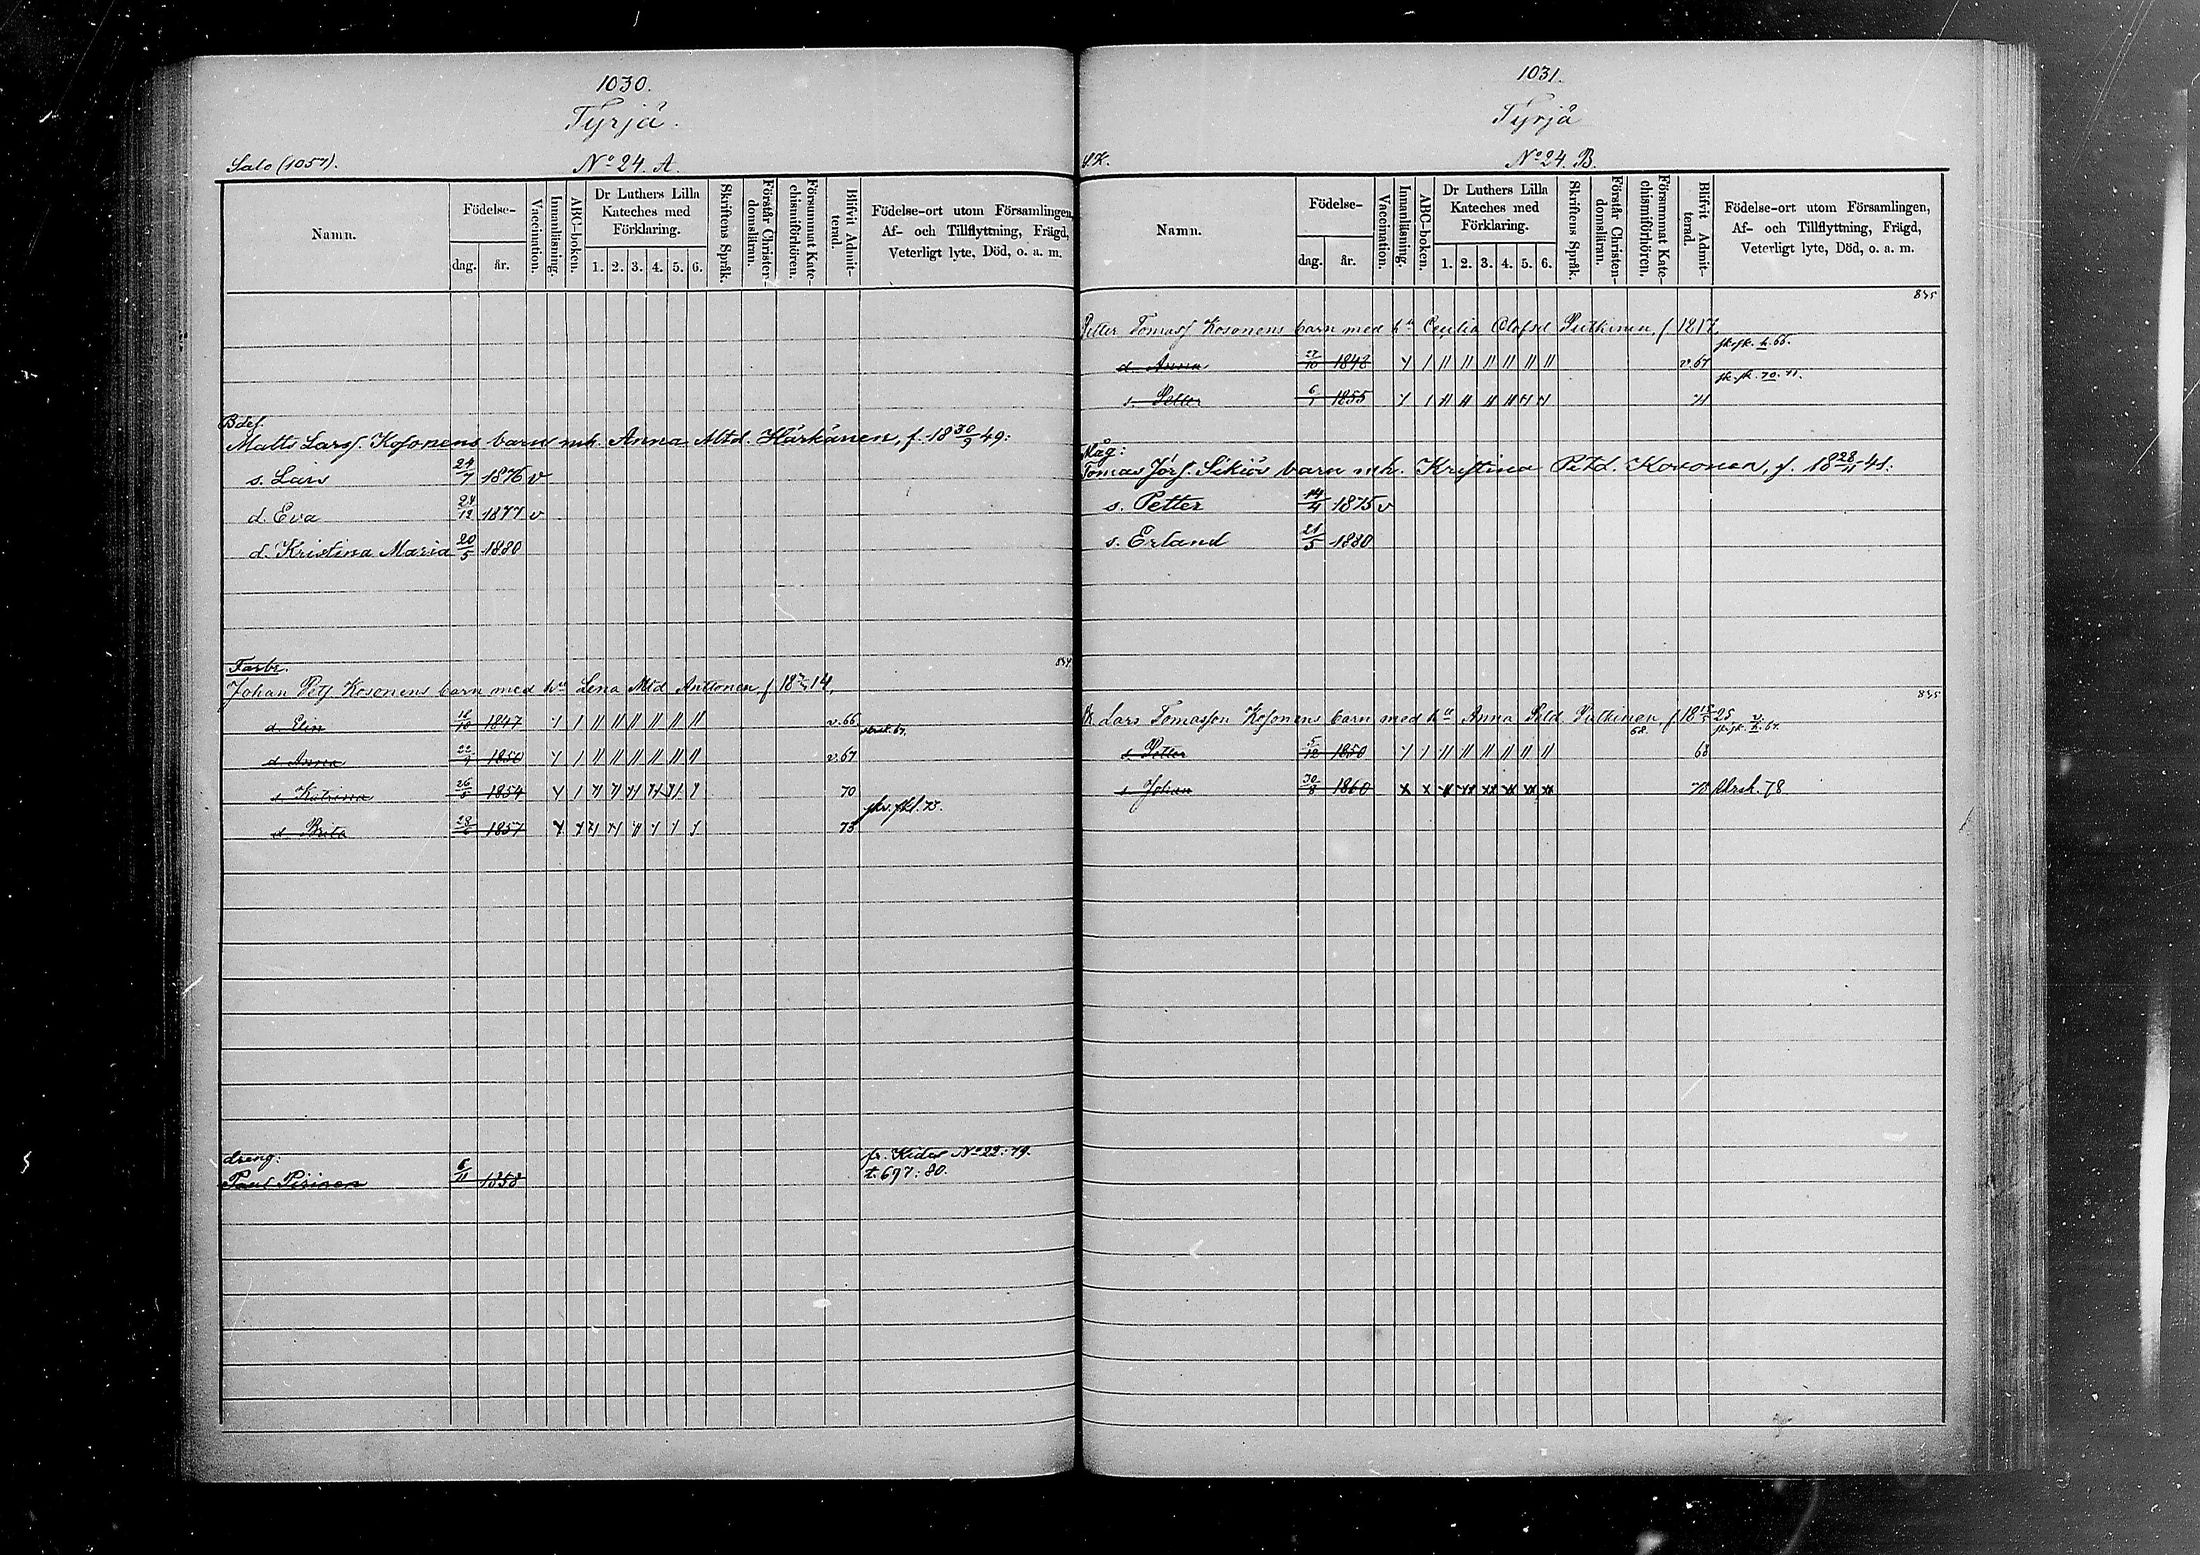 1030.
Tyrjä.
Salo (1057).
No 24. A.
Namn.
Födelse-
dag.
år.
Vaccination.
Innanläsning.
ABC-boken.
Dr Luthers Lilla
Kateches med
Förklaring.
1. 2. 3. 4. 5. 6.
Skriftens Språk.
Förstår Christen-
domsläran.
Försummat Kate-
chismiförhören.
Blifvit Admit-
terad.
Födelse-ort utom Församlingen,
Af- och Tillflyttning, Frägd,
Veterligt lyte, Död, o. a. m.
Bdef.
Matts Larsf. Kosonens barn mh. Anna Mtd. Härkänen, f. 18 30/9 49:
s. Lars 24/7 1876 v
d. Eva 24/12 1877 v
d. Kristina Maria 20/5 1880
Farbr. 834
Johan Petf Kosonens barn med hu Lena Mtd Anttonen, f 14,
d. Elin 18/10 1847 v. 66
d. Anna 1850 v. 67
s. Katrina 26/5 1854 70
d. Brita 1857 73
dreng:
Paul Piirinen 6/11 1858
fr. Kides No 22:79.
t. 697:80.
1031.
Tyrjä
S.K.
No 24. B.
Namn.
Födelse-
dag.
år.
Vaccination.
Innanläsning.
ABC-boken.
Dr Luthers Lilla
Kateches med
Förklaring.
1. 2. 3. 4. 5. 6.
Skriftens Språk.
Förstår Christen-
domsläran.
Försummat Kate-
chismiförhören.
Blifvit Admit-
terad.
Födelse-ort utom Församlingen,
Af- och Tillflyttning, Frägd,
Veterligt lyte, Död, o. a. m.
835
Petter Tomasf Kosonens barn med hu Cecilia Olofsd Putkinen, f 1817,
d. Anna 27/10 1848 v. 67
s. Petter 1855 71
Måg:
Tomas Jörf. Sikiös barn mh. Kristina Petd. Kosonen, f. 18 28/11 41:
s. Petter 14/4 1875 v
s. Erland 21/5 1880
835
Lars Tomasson Kosonens barn med hu Anna Putkinen, f 18 25
s. Petter 5/12 1850 68
s. Johan 30/8 1860 78